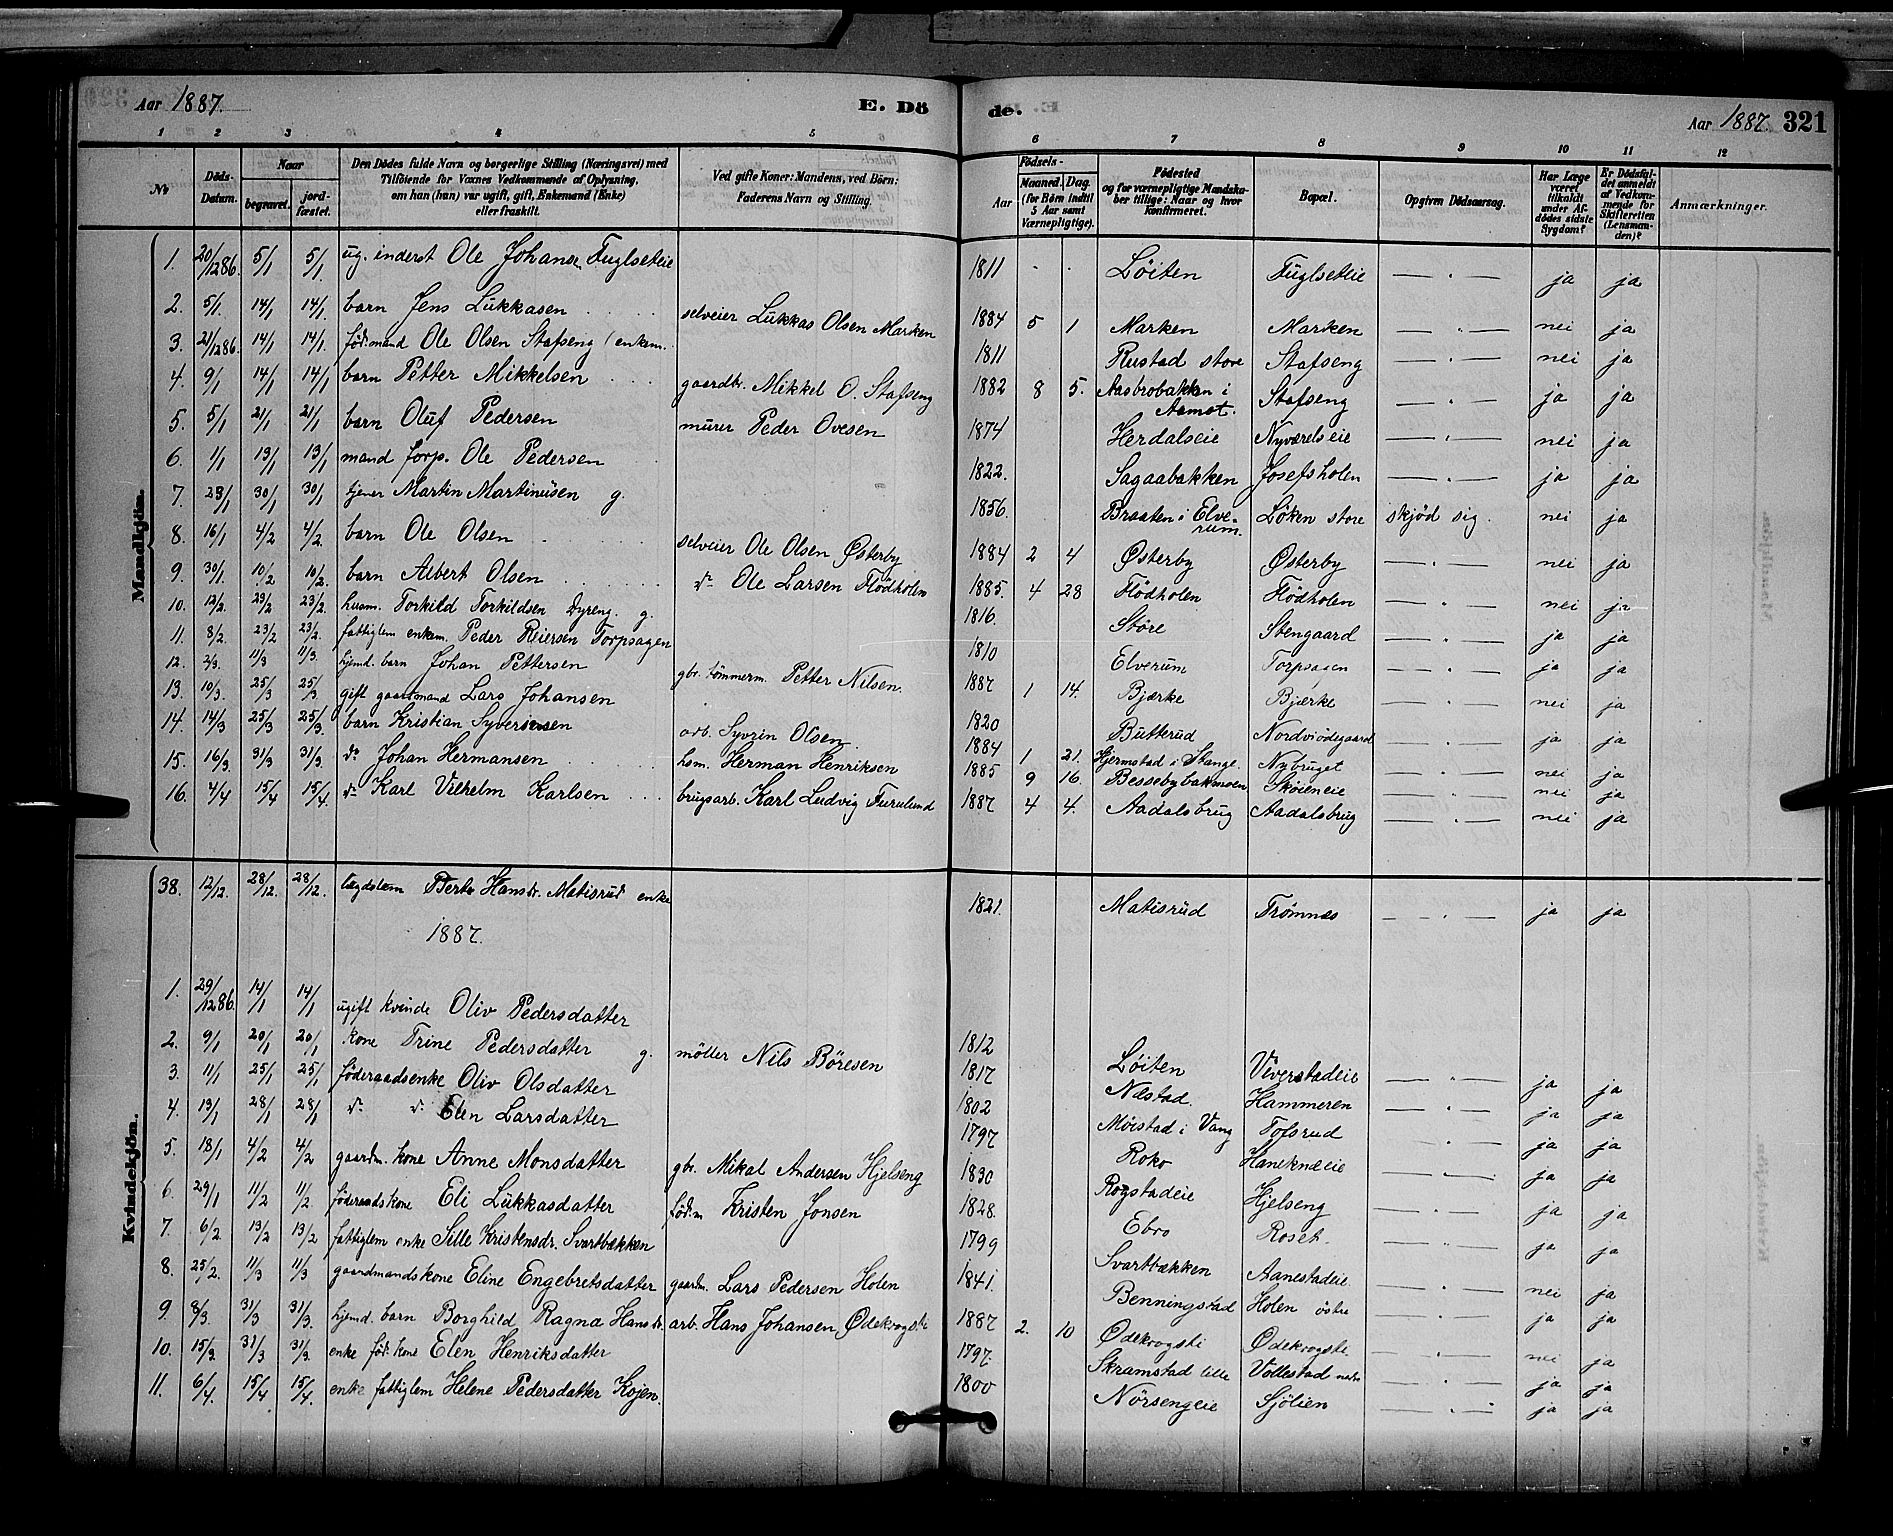 Aar 1887. E. Dö
de. Aar 1887. 321
1 2 3 4 5
6 7 8 9 10 11 12
No
Döds-Datum.
Naar
begravet.
jord-fæstet.
Den Dödes fulde Navn og borgerlige Stilling (Næringsvei) med
Tilföiende for Voxnes Vedkommende af Oplysning,
om han (hun) var ugift, gift, Enkemand (Enke)
eller fraskilt.
Ved gifte Koner: Mandens, ved Börn:
Faderens Navn og Stilling.
Födsels-
Aar
Maaned. Dag.
(for Börn indtil
5 Aar samt
Værnepligtige).
Födested
og for værnepligtige Mandska-
ber tillige: Naar og hvor
Konfirmeret.
Bopæl.
Opgiven Dödsaarsag.
Har Læge
været
tilkaldt
under Af-
dödes sidste
Sygdom?
Er Dödsfal-
det anmeldt
af Vedkom-
mende for
Skifteretten
(Lensman-
den)?
Anmærkninger.
Mandkjön.
1. 20/12 86. 5/1 5/1 ug. inderst Ole Johansen Fuglseteie 1811 Löiten Fuglseteie — " — ja ja
2. 5/1. 14/1 14/1. barn Jens Lukkasen selveier Lukkas Olsen Marken 1884 5 1 Marken Marken — " — nei ja
3. 21/12 86. 14/1 14/1. föd.mand Ole Olsen Stafseng (enkem. 1811 Rustad store Stafseng — " — nei ja
4. 9/1 14/1 14/1 barn Petter Mikkelsen gaardbr. Mikkel O. Stafseng 1882 8 5. Aasbrobakken i Aamot. Stafseng — " — ja ja
5. 5/1 21/1 21/1 barn Oluf Pedersen murer Peder Ovesen 1874 Herdalseie Nyværelseie — " — nei ja
6. 1/1 13/1 13/1 mand forp. Ole Pedersen 1822. Sagaabakken Josefsholen — " — ja ja
7 23/1 30/1 30/1 tjener Martin Martinusen g. 1856. Braaten i Elverum. Löken store skjöd sig. nei ja
8. 16/1 4/2 4/2. barn Ole Olsen selveier Ole Olsen Østerby 1884 2 4 Østerby Østerby — " — nei ja
9. 30/1. 10/2 10/2. barn Albert Olsen do Ole Larsen Flödholen 1885. 4 28 Flödholen Flödholen — " — nei ja
10. 12/2. 23/2 23/2. husm. Torkild Torkildsen Dyreng. g. 1816. Störe Stengaard — " — ja ja
11. 8/2. 23/2 23/2. fattiglem enkem. Peder Reiersen Torpsagen 1810 Elverum Torpsagen — " — ja ja
12. 2/3. 11/3 11/3. hjemd. barn Johan Pettersen gbr. tömmerm. Petter Nilsen. 1887 1 14. Bjærke Bjærke — " — nei ja
13. 10/3. 25/3 25/3. gift gaardmand Lars Johansen 1820 Butterud — " — ja ja
14. 14/3 25/3 25/3. barn Kristian Syversen arb. Syvrin Olsen. 1884 1 21. Hjermstad i Stange. Nybruget — " — nei ja
15. 16/3. 31/3 31/3. do Johan Hermansen hsm. Herman Henriksen 1885 9 16. Bessebybakmoen Skøieneie — " — nei ja
16. 4/4 15/4 15/4. do Karl Vilhelm Karlsen brugsarb. Karl Ludvig Furulund 1887 4 4. Aadalsbrug Aadalsbrug — " — nei ja
Kvindekjön.
38. 12/12. 28/12. 28/12. lægdslem Berte Hansdr. Matisrud enke 1821. Matisrud Trömnæs — " — ja ja
1887.
1. 29/12 86. 14/1 14/1 ugift kvinde Oliv Pedersdatter 1812 Löiten Veverstadeie — " — ja ja
2. 9/1 20/1 20/1 kone Trine Pedersdatter g. möller Nils Böresen 1817 Næstad. Hammeren — " — ja ja
3. 11/1 25/1 25/1 föderaadsenke Oliv Olsdatter 1802 Möistad i Vang Tofsrud — " — ja ja
4. 13/1 28/1 28/1 do do Elen Larsdatter 1797 Roko Haneknæeie — " — ja ja
5. 18/1 4/2 4/2 gaardm. kone Anne Monsdatter gbr. Mikal Andersen Hjelseng 1830 Rogstadeie Hjelseng — " — ja ja
6. 29/1 11/2 11/2 föderaadskone Eli Lukkasdatter föd.m Kristen Jonsen 1828. Ebro Roset — " — ja ja
7. 6/2 13/2 13/2 fattiglem enke Sille Kristensdr. Svartbækken 1799 Svartbækken Aanestadeie — " — nei ja
8. 25/2. 11/3 11/3 gaardmandskone Eline Engebretsdatter gaardm. Lars Pedersen Holen 1841. Benningstad Holen östre — " — ja ja
9 8/3. 31/3 31/3. hjemd. barn Borghild Ragna Hansdr. arb. Hans Johansen Ødekrogsti 1887 2. 10 Ødekrogsti Ødekrogsti. — " — nei ja
10. 15/3. 31/3 31/3. enke föd. kone Elen Henriksdatter 1797. Skramstad lille Vollestad nedre — " — ja ja
11. 6/4 15/4 15/4. enke fattiglem Helene Pedersdatter Kojen. 1800 Nörsengeie Sjölien — " — ja ja